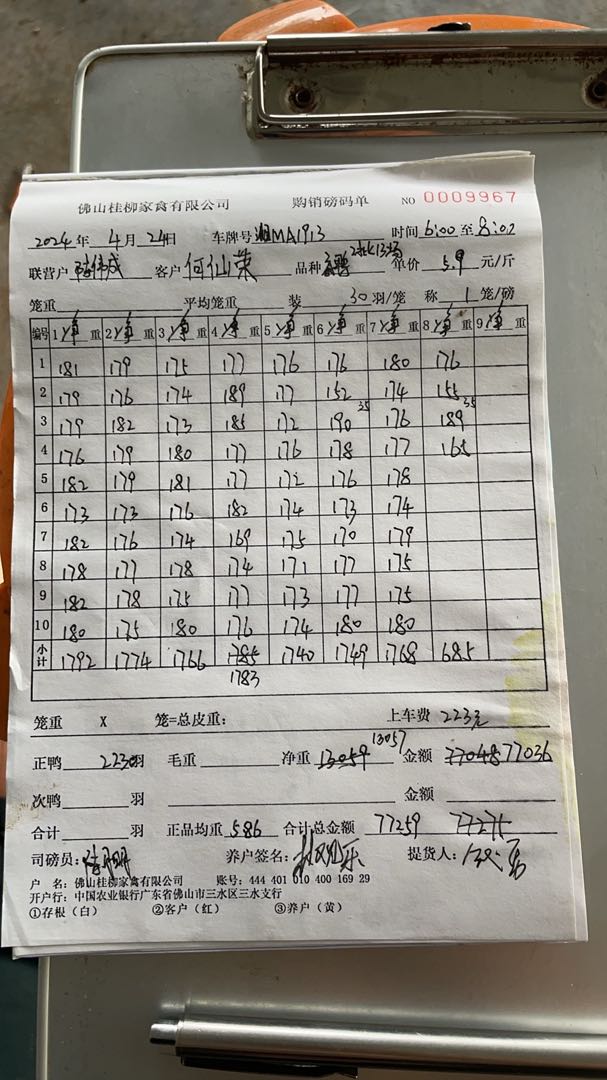 佛山桂柳家禽有限公司 购销磅码单 NO 0009967
2024年 4月24日 车牌号 湘MA1913 时间 6:00 至 8:02
联营户 陆伟成 客户 何仙荣 品种 单价 5.9 元/斤
笼重 平均笼重 装 30 羽/笼 称 1 笼/磅
编号 1净重 2净重 3净重 4净重 5净重 6净重 7净重 8净重 9净重
1 181 179 175 177 176 176 180 176
2 179 176 174 189 177 152 174 155
3 179 182 173 185 172 190 35 176 189 35
4 176 179 180 177 176 178 177 165
5 182 179 181 177 172 176 178
6 173 173 176 182 174 173 174
7 182 176 174 169 175 170 179
8 178 177 178 174 171 177 175
9 182 178 175 177 173 177 175
10 180 175 180 176 174 180 180
小计 1792 1774 1766 1785 1740 1749 1768 685
1783
笼重 X 笼=总皮重: 上车费 223元
正鸭 2230羽 毛重 净重 13059 13057 金额 77048 77036
次鸭 羽 金额
合计 羽 正品均重 5.86 合计总金额 77259 77271
司磅员: 养户签名: 提货人:
户 名: 佛山桂柳家禽有限公司 账号: 444 401 010 400 169 29
开户行: 中国农业银行广东省佛山市三水区三水支行
①存根（白） ②客户（红） ③养户（黄）